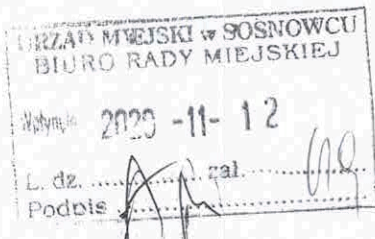 URZĄD MIEJSKI w SOSNOWCU
BIURO RADY MIEJSKIEJ
Wpłynęło 2020 -11- 12
L. dz. .................. zał. ..................
Podpis ..................